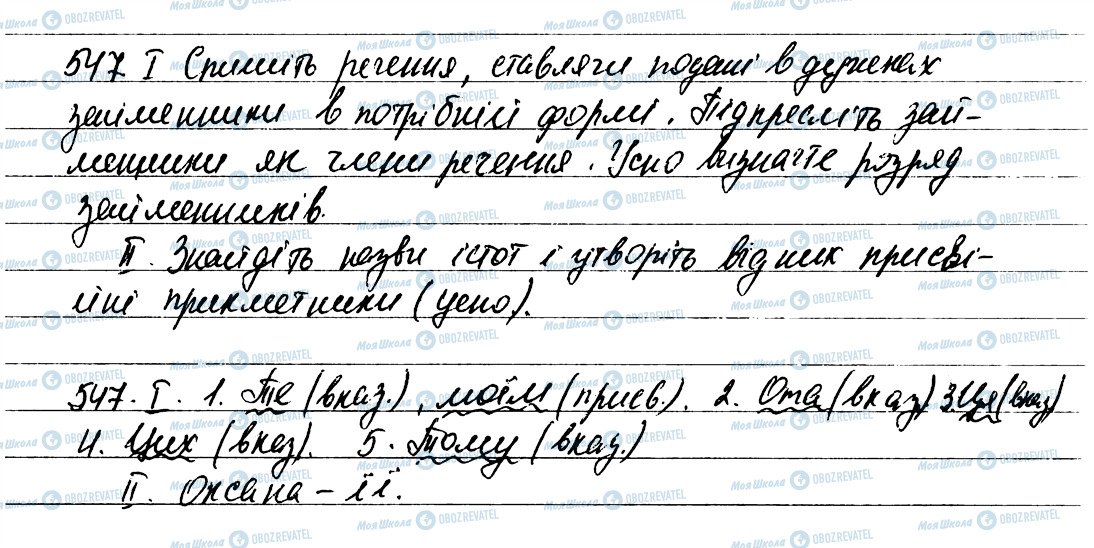 547 I Спишіть речення, ставлячи подані в дужках
займенники в потрібній формі. Підкресліть зай-
менники як члени речення. Усно визначте розряд
займенників.
II. Знайдіть назви істот і утворіть від них присві-
йні прикметники (усно).
547. I. 1. Те (вказ.), моїм (присв.). 2. Ота (вказ) 3. Ця (вказ)
4. Цих (вказ). 5. Тому (вказ.)
II. Оксана - її.
Моя Школа OBOZREVATEL